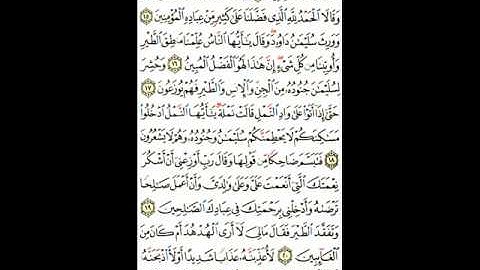 وَقَالَا ٱلْحَمْدُ لِلَّهِ ٱلَّذِى فَضَّلَنَا عَلَىٰ كَثِيرٍ مِّنْ عِبَادِهِ ٱلْمُؤْمِنِينَ
١٥ وَوَرِثَ سُلَيْمَٰنُ دَاوُۥدَ وَقَالَ يَٰٓأَيُّهَا ٱلنَّاسُ عُلِّمْنَا مَنطِقَ ٱلطَّيْرِ
وَأُوتِينَا مِن كُلِّ شَىْءٍ إِنَّ هَٰذَا لَهُوَ ٱلْفَضْلُ ٱلْمُبِينُ ١٦ وَحُشِرَ
لِسُلَيْمَٰنَ جُنُودُهُۥ مِنَ ٱلْجِنِّ وَٱلْإِنسِ وَٱلطَّيْرِ فَهُمْ يُوزَعُونَ ١٧
حَتَّىٰٓ إِذَآ أَتَوْا۟ عَلَىٰ وَادِ ٱلنَّمْلِ قَالَتْ نَمْلَةٌ يَٰٓأَيُّهَا ٱلنَّمْلُ ٱدْخُلُوا۟
مَسَٰكِنَكُمْ لَا يَحْطِمَنَّكُمْ سُلَيْمَٰنُ وَجُنُودُهُۥ وَهُمْ لَا يَشْعُرُونَ
١٨ فَتَبَسَّمَ ضَاحِكًا مِّن قَوْلِهَا وَقَالَ رَبِّ أَوْزِعْنِىٓ أَنْ أَشْكُرَ
نِعْمَتَكَ ٱلَّتِىٓ أَنْعَمْتَ عَلَىَّ وَعَلَىٰ وَٰلِدَىَّ وَأَنْ أَعْمَلَ صَٰلِحًا
تَرْضَىٰهُ وَأَدْخِلْنِى بِرَحْمَتِكَ فِى عِبَادِكَ ٱلصَّٰلِحِينَ ١٩
وَتَفَقَّدَ ٱلطَّيْرَ فَقَالَ مَا لِىَ لَآ أَرَى ٱلْهُدْهُدَ أَمْ كَانَ مِنَ
ٱلْغَآئِبِينَ ٢٠ لَأُعَذِّبَنَّهُۥ عَذَابًا شَدِيدًا أَوْ لَأَا۟ذْبَحَنَّهُۥٓ